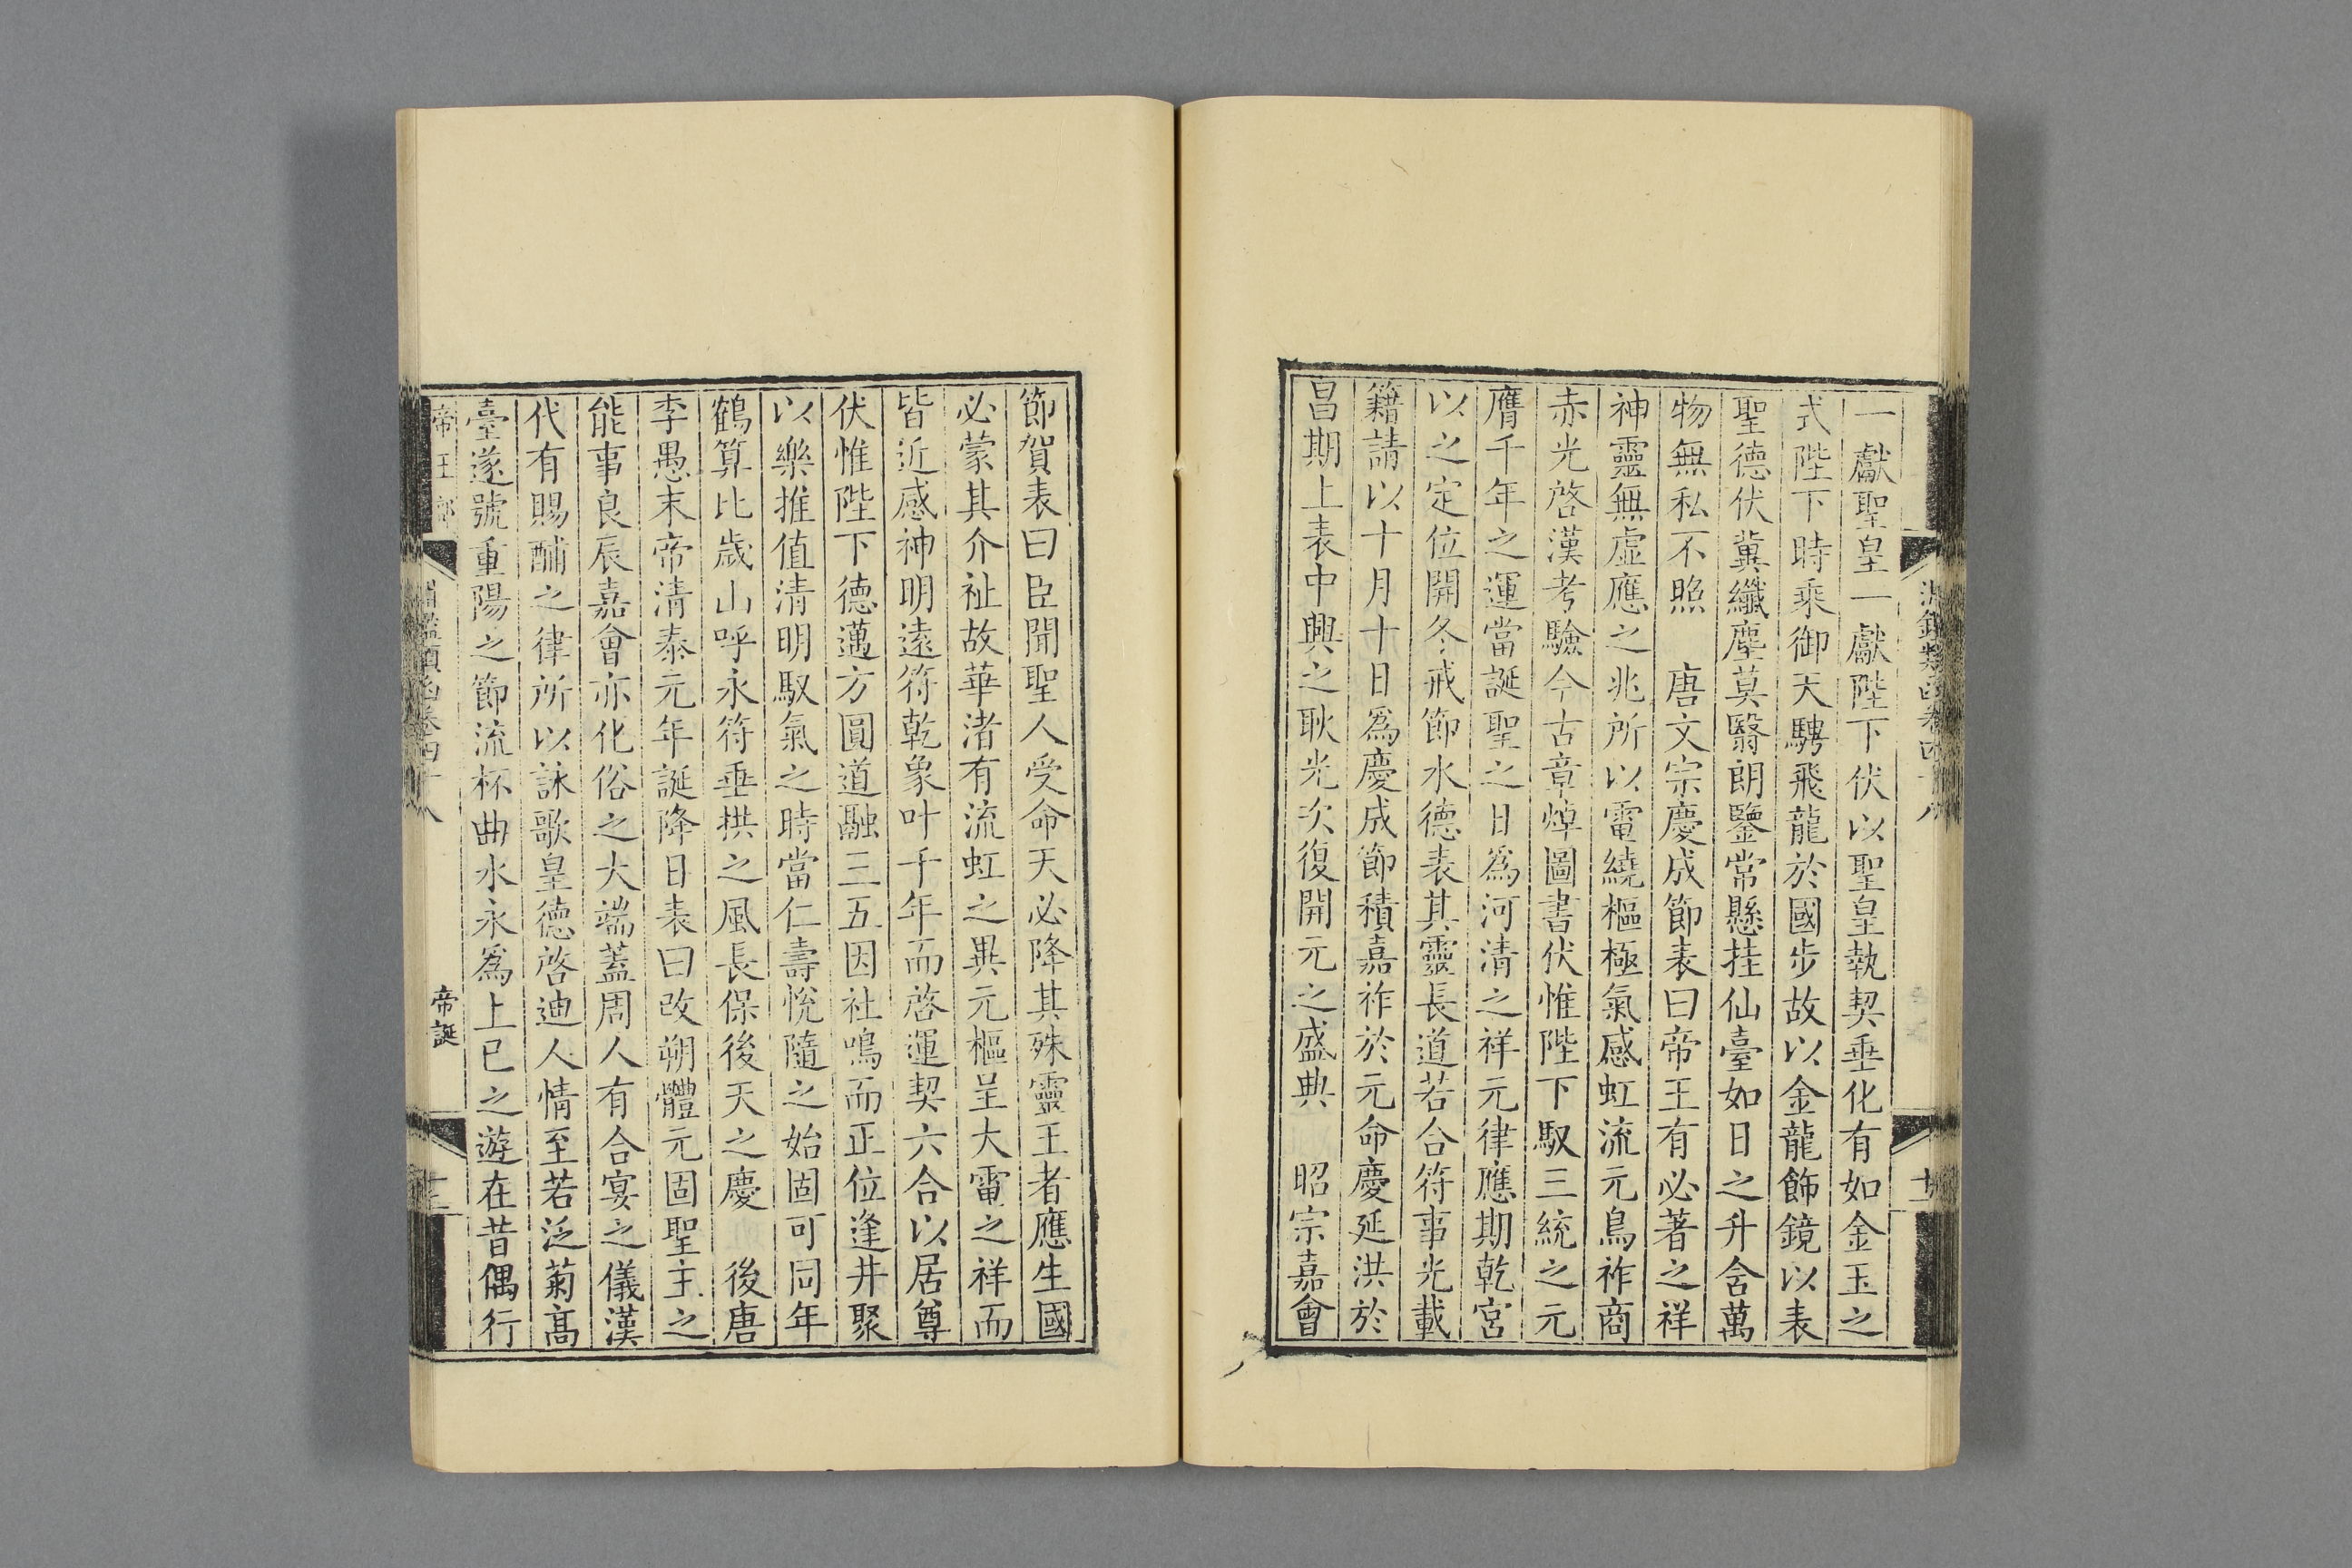 一獻聖皇一獻陛下伏以聖皇執契垂化有如金玉之
式陛下時乘御天騁飛龍於國步故以金龍飾鏡以表
聖德伏冀纖塵莫翳朗鑒常懸挂仙臺如日之升舍萬
物無私不照　唐文宗慶成節表曰帝王有必著之祥
神靈無虛應之兆所以電繞樞極氣感虹流元鳥祚商
赤光啓漢考驗今古章焯圖書伏惟陛下馭三統之元
膺千年之運當誕聖之日爲河清之祥元律應期乾宮
以之定位開冬戒節水德表其靈長道若合符事光載
籍請以十月十日爲慶成節積嘉祚於元命慶延洪於
昌期上表中興之耿光次復開元之盛典　昭宗嘉會
節賀表曰臣聞聖人受命天必降其殊靈王者應生國
必蒙其介祉故華渚有流虹之異元樞呈大電之祥而
皆近感神明遠符乾象叶千年而啓運契六合以居尊
伏惟陛下德邁方圓道融三五因社鳴而正位逢井聚
以樂推值清明馭氣之時當仁壽悅隨之始固可同年
鶴算比歲山呼永符垂拱之風長保後天之慶　後唐
李愚末帝清泰元年誕降日表曰改朔體元固聖主之
能事良辰嘉會亦化俗之大端蓋周人有合宴之儀漢
代有賜酺之律所以詠歌皇德啓迪人情至若泛菊高
臺遂號重陽之節流杯曲水永爲上巳之遊在昔偶行
帝王部
鑑類函卷四十八
帝誕